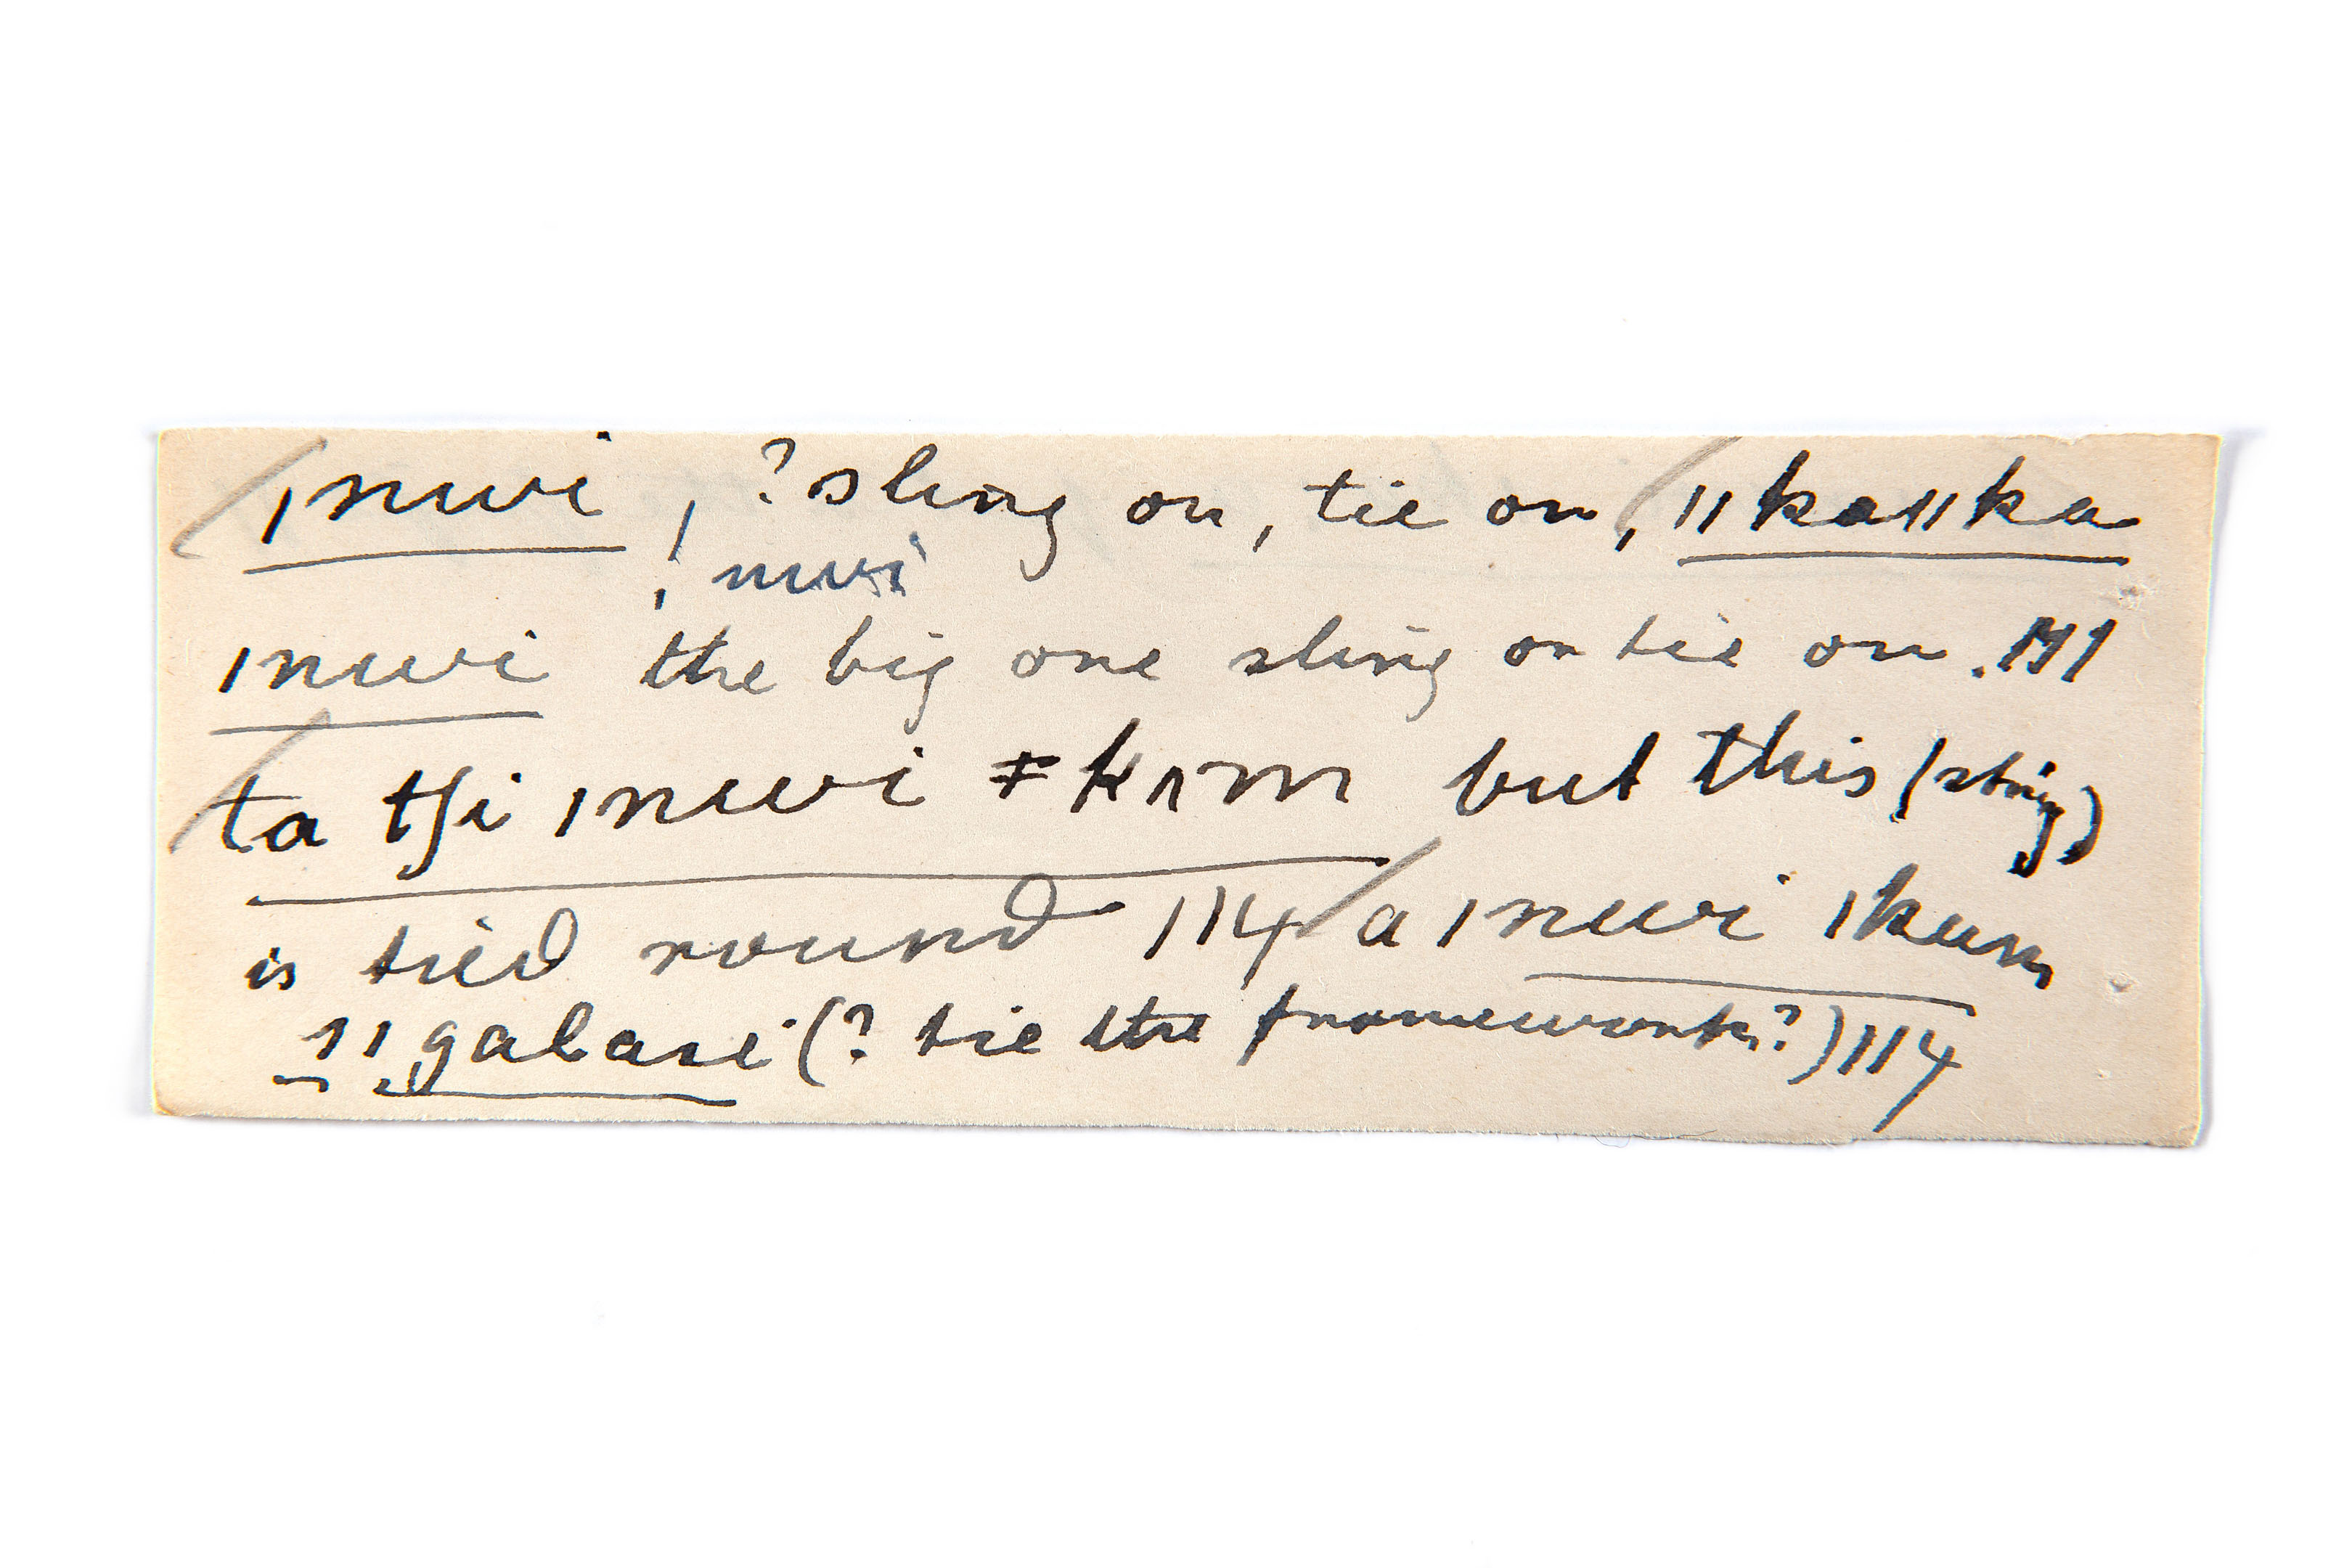 ǀnwi, ? sling on, tie on, ǁkaǁka
ǀnwi
ǀnwi the big one sling or tie on.
ta tʃi ǀnwi ǂkʌm but this (string)
is tied round 114 a ǀnwi ǀkum
ǁgalasi (? tie the framework?) 114